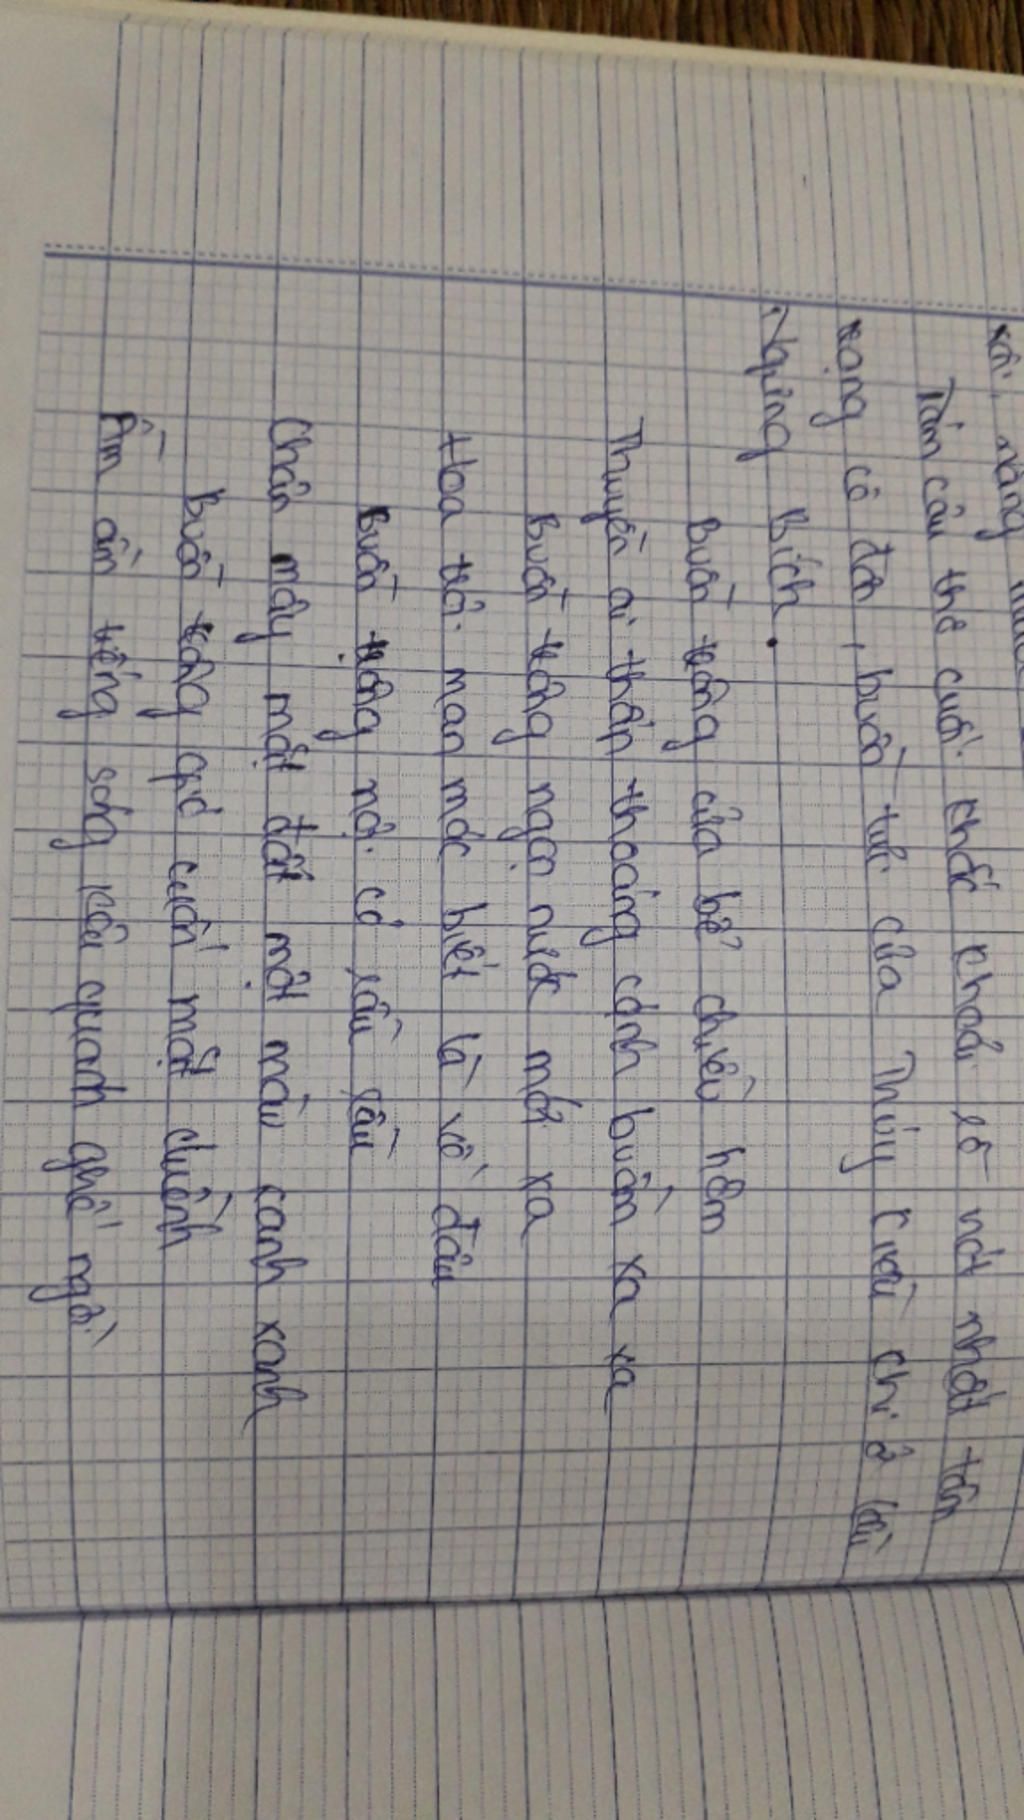 nàng
Tám câu thơ cuối khắc khoải rõ nét nhất tâm
trạng cô đơn, buồn tủi của Thúy Kiều khi ở lầu
Ngưng Bích.
Buồn trông cửa bể chiều hôm
Thuyền ai thấp thoáng cánh buồm xa xa
Buồn trông ngọn nước mới xa
Hoa trôi man mác biết là về đâu
Buồn trông nội cỏ rầu rầu
Chân mây mặt đất một màu xanh xanh
Buồn trông gió cuốn mặt duềnh
Ầm ầm tiếng sóng kêu quanh ghế ngồi